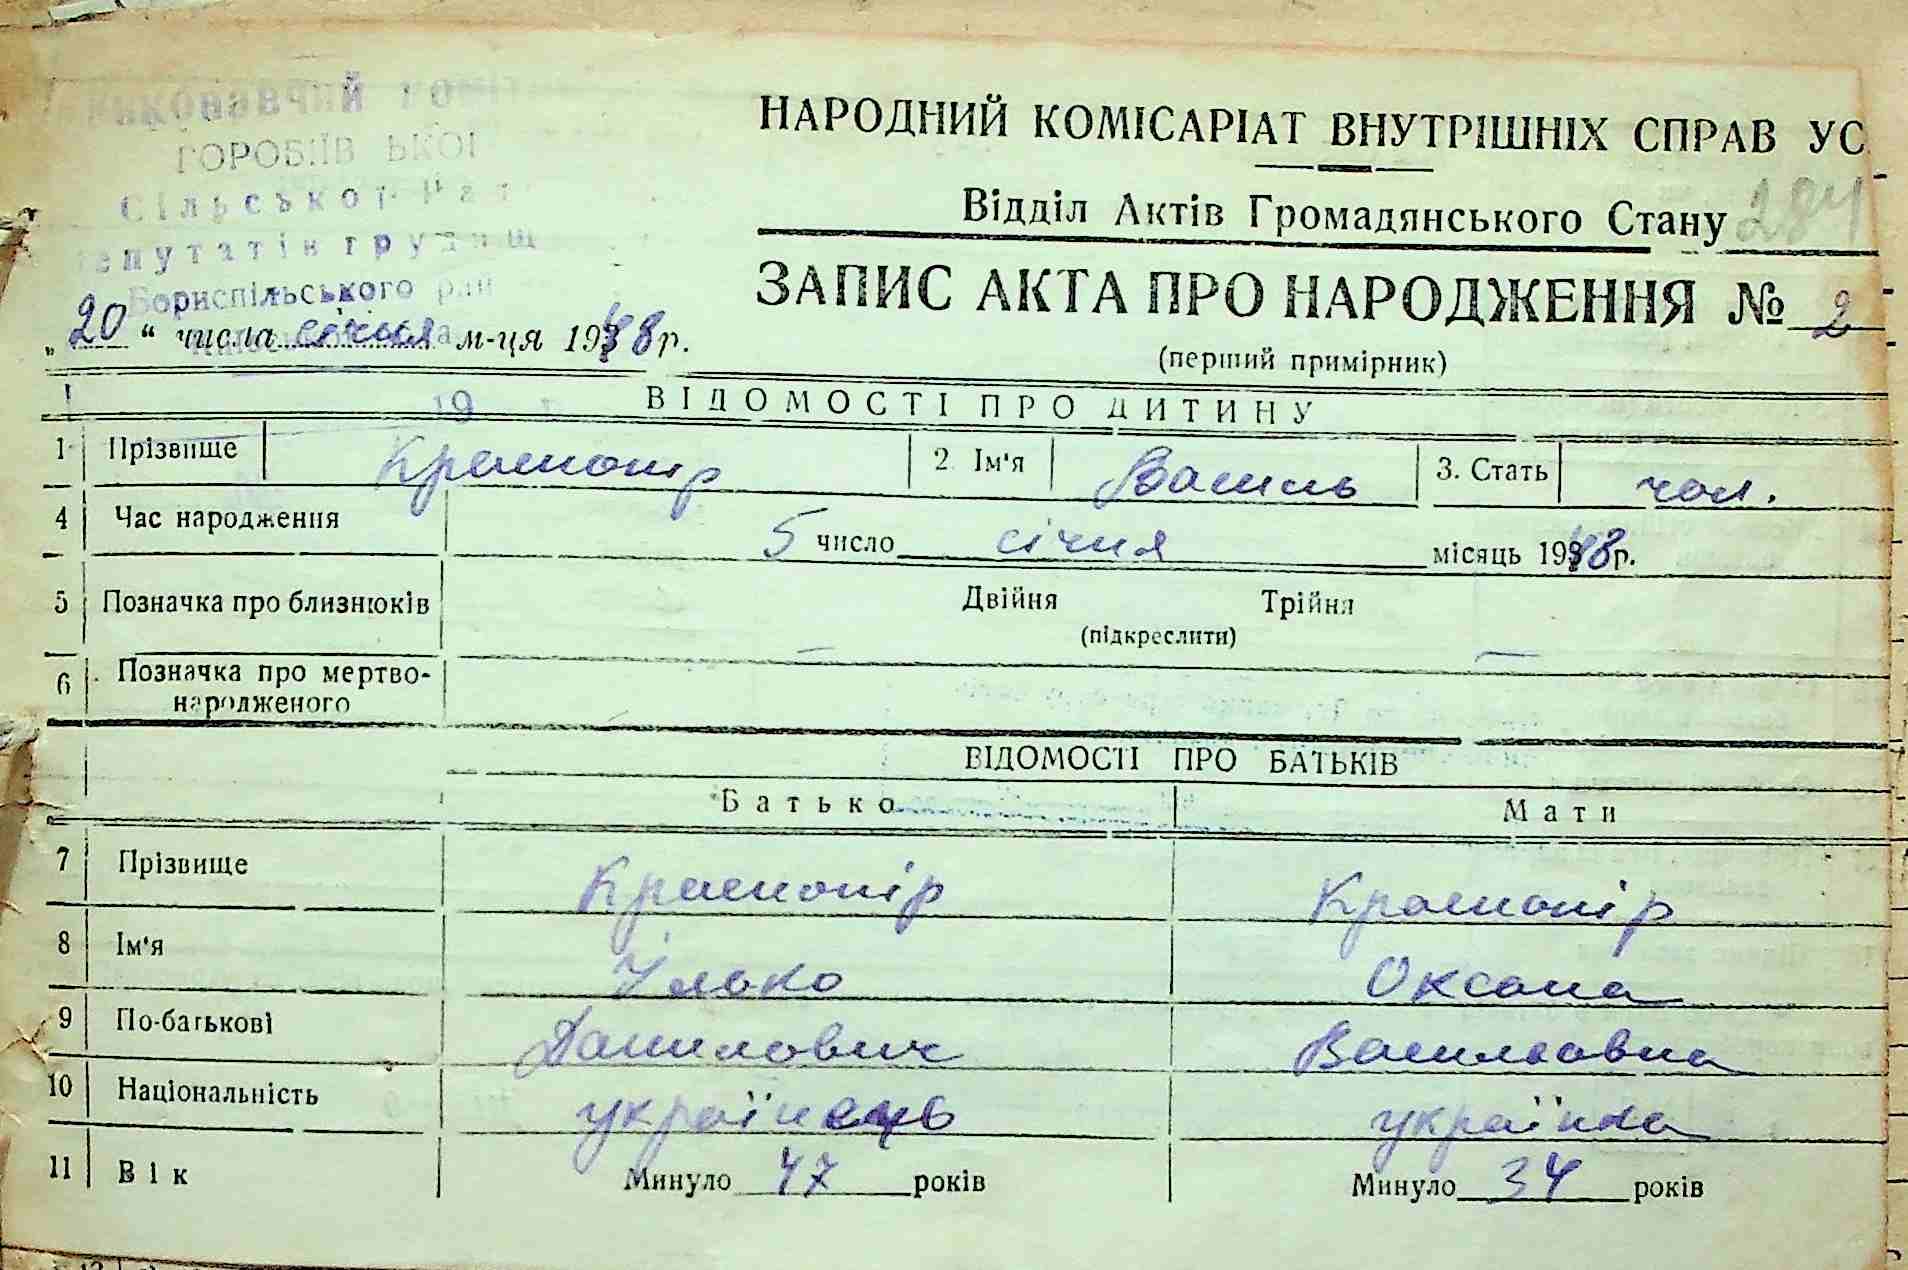 Виконавчий
Сільської
Бориспільського
НАРОДНИЙ КОМІСАРІАТ ВНУТРІШНІХ СПРАВ УС
Відділ Актів Громадянського Стану 284
ЗАПИС АКТА ПРО НАРОДЖЕННЯ № 2
„20“ числа січня м-ця 1948 р.
(перший примірник)
19
ВІДОМОСТІ ПРО ДИТИНУ
1 Прізвище Краснопір 2 Ім'я Василь 3. Стать чол.
4 Час народження 5 число січня місяць 1948 р.
5 Позначка про близнюків Двійня Трійня
(підкреслити)
6 Позначка про мертво-
народженого
ВІДОМОСТІ ПРО БАТЬКІВ
Батько Мати
7 Прізвище Краснопір Краснопір
8 Ім'я Ілько Оксана
9 По-батькові Данилович Васильовна
10 Національність українець українка
11 Вік Минуло 47 років Минуло 34 років